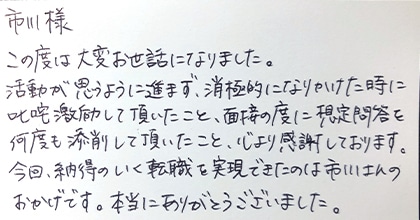 市川様
この度は大変お世話になりました。
活動が思うように進まず、消極的になりかけた時に
叱咤激励して頂いたこと、面接の度に想定問答を
何度も添削して頂いたこと、心より感謝しております。
今回、納得のいく転職を実現できたのは市川さんの
おかげです。本当にありがとうございました。